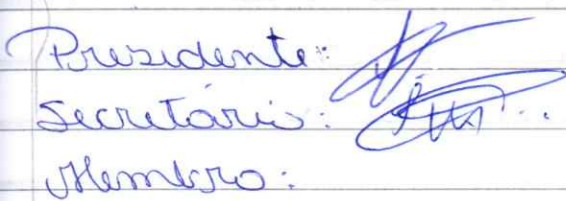 Presidente:
Secretário:
Membro: